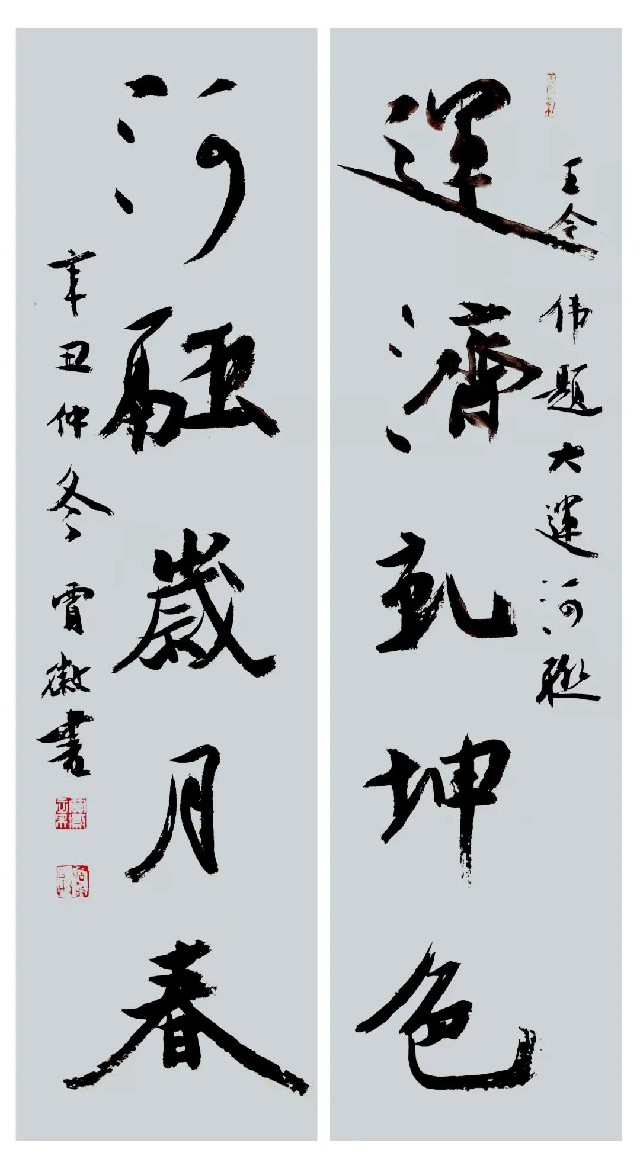 王令伟題大運河聯
運濟乾坤色
河融歲月春
辛丑仲冬賈徽書